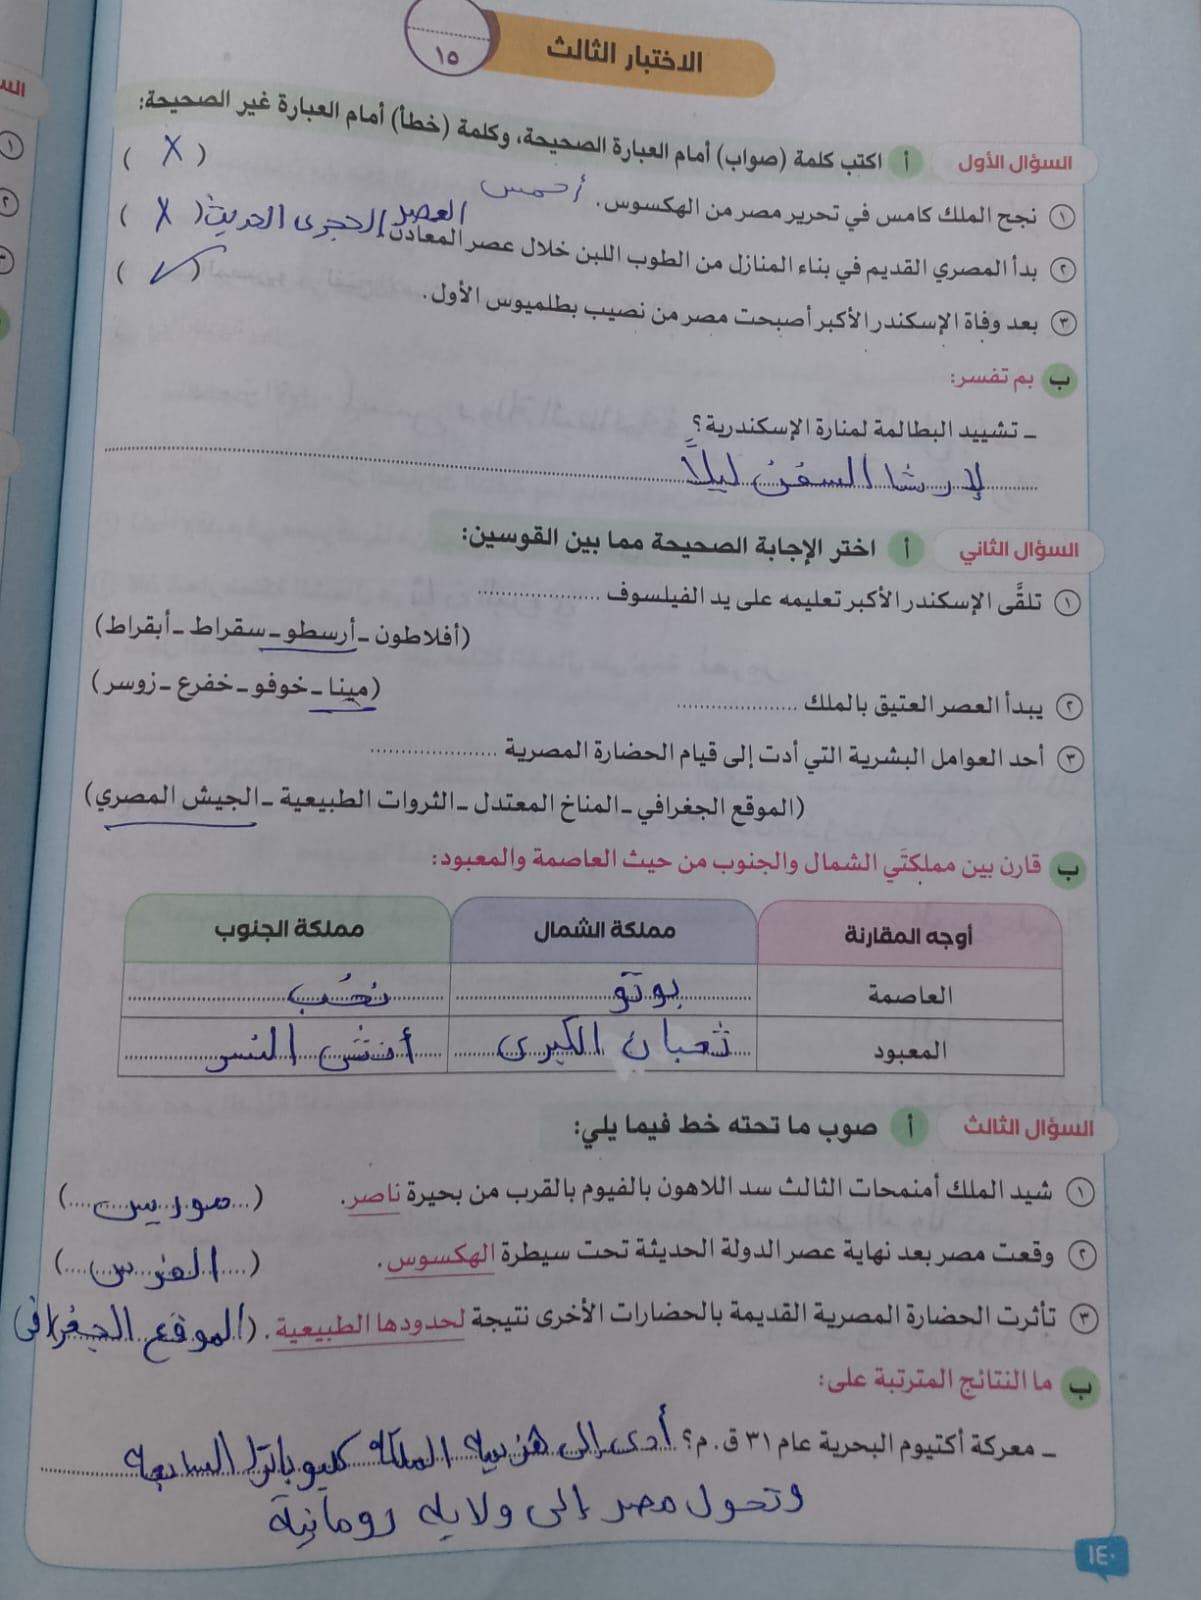 الاختبار الثالث
١٥
السؤال الأول أ اكتب كلمة (صواب) أمام العبارة الصحيحة، وكلمة (خطأ) أمام العبارة غير الصحيحة:
١ نجح الملك كامس في تحرير مصر من الهكسوس. أحمس ( X )
٢ بدأ المصري القديم في بناء المنازل من الطوب اللبن خلال عصر المعادن. العصر الحجرى الحديث ( X )
٣ بعد وفاة الإسكندر الأكبر أصبحت مصر من نصيب بطلميوس الأول. ( ✓ )
ب بم تفسر:
– تشييد البطالمة لمنارة الإسكندرية؟
لإرشا السفن ليلاً
السؤال الثاني أ اختر الإجابة الصحيحة مما بين القوسين:
١ تلقَّى الإسكندر الأكبر تعليمه على يد الفيلسوف ....................
(أفلاطون – أرسطو – سقراط – أبقراط)
٢ يبدأ العصر العتيق بالملك .................... (مينا – خوفو – خفرع – زوسر)
٣ أحد العوامل البشرية التي أدت إلى قيام الحضارة المصرية ....................
(الموقع الجغرافي – المناخ المعتدل – الثروات الطبيعية – الجيش المصري)
ب قارن بين مملكتَي الشمال والجنوب من حيث العاصمة والمعبود:
أوجه المقارنة مملكة الشمال مملكة الجنوب
العاصمة بوتو نخب
المعبود ثعبان الكبرى أنثى النسر
السؤال الثالث أ صوب ما تحته خط فيما يلي:
١ شيد الملك أمنمحات الثالث سد اللاهون بالفيوم بالقرب من بحيرة ناصر. (موريس)
٢ وقعت مصر بعد نهاية عصر الدولة الحديثة تحت سيطرة الهكسوس. (الفرس)
٣ تأثرت الحضارة المصرية القديمة بالحضارات الأخرى نتيجة لحدودها الطبيعية. (الموقع الجغرافى
ب ما النتائج المترتبة على:
– معركة أكتيوم البحرية عام ٣١ ق.م؟ أدى إلى هزيمة الملكة كليوباترا السابعه
وتحول مصر إلى ولايه رومانية
١٤٠